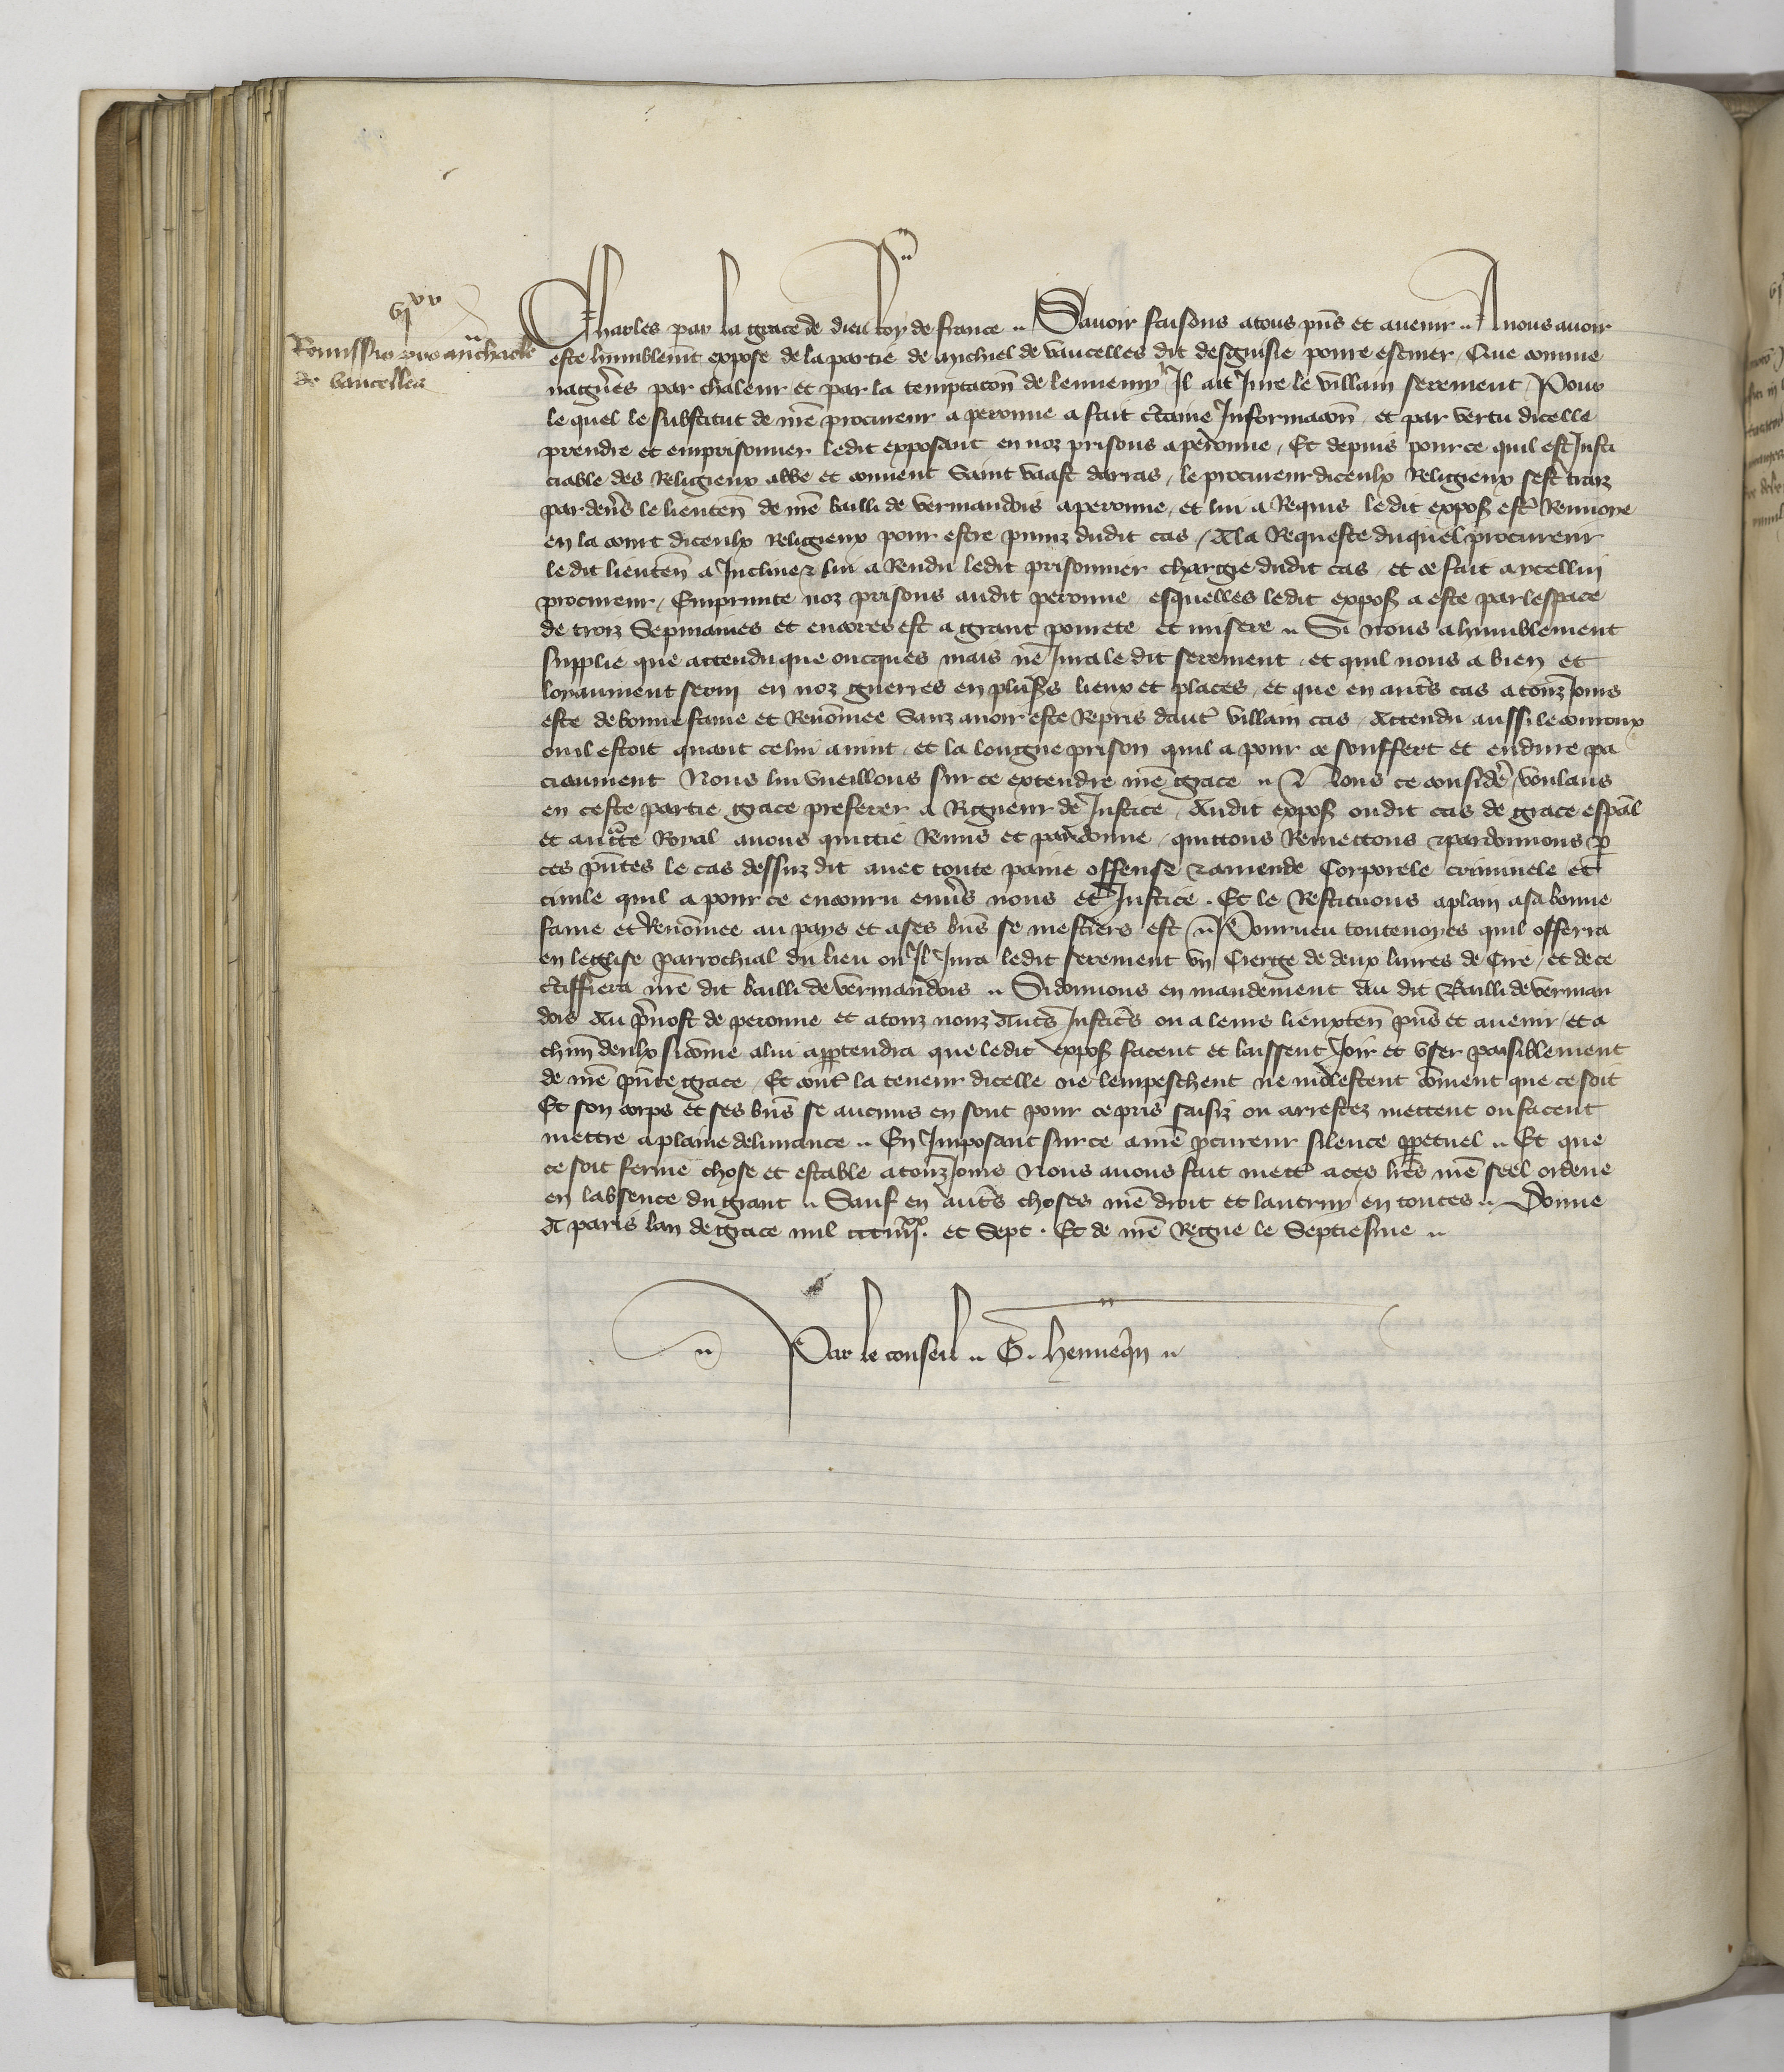 vjxx
Remissio pro Anchaele
de Vaucelles
Charles par la grace de dieu Roy de france .. Savoir faisons a tous pns et avenir .. A nous avoir
este humblemt expose de la partie de Anchiel de vaucelles dit desguisie povre escuier / Que comme
nagueres par chaleur et par la temptacon de lennemy Il ait Jure le villain serement / Pour
le quel le substitut de nre procureur a peronne a fait ctaine Informacon et par vertu dicelle
prendre et emprisonner ledit expposant en noz prisons a peronne / Et depuis pour ce quil est Justi
ciable des Religieux abbe et convent Saint vaast darras / le procureur diceulx Religieux sest traiz
par devs le lieuten de nre bailli de vermandois a peronne / et lui a Requis ledit expos estr Renvoye
en la court diceulx Religieux pour estre puniz dudit cas / A la Requeste duquel procureur
le dit lieuten a Incline & lui a Rendu ledit prisonnier chargie dudit cas / et ce fait a ycellui
procureur / Emprunte noz prisons audit peronne esquelles ledit expos a este par lespace
de troiz Sepmaines et encores est a grant povrete et misere .. Si nous a humblement
supplie que attendu que oncques mais ne Jura le dit serement / et quil nous a bien et
loyaument servi en noz guerres en plusrs lieux et places / et que en autrs cas a touz Jours
este de bonne fame et Renommee Sanz avoir este Repris dautr villain cas / Attendu aussi le couroux
ou il estoit quant ce lui avint / et la longue prison quil a pour ce souffert et endure pa
ciaument Nous lui vueillons sur ce extendre nre grace .. Nous ce considere / voulans
en ceste partie grace preferer a Rigueur de Justice / Audit expos ou dit cas de grace espal
et auctte Royal avons quittie Remis et pardonne / quittons Remettons & pardonnons p
ces pntes le cas dessuz dit avec toute paine offense & amende Corporele criminele et
civile quil a pour ce encouru envs nous et Justice . Et le Restituons a plain a sa bonne
fame et Renommee au pays et a ses bns se mestiers est .. Pourveu toutevoyes quil offerra
en leglise parrochial du lieu ou Il Jura ledit serement un Cierge de deux livres de Cire / et de ce
ctiffiera nre dit bailli de vermandois .. Si donnons en mandement Au dit Bailli de verman
dois Au pvost de peronne et a touz noz Autrs Justicrs ou a leurs lieuxten pns et avenir / et a
chun deulx si comme a lui apptendra que ledit expos facent et laissent Joir et user paisiblement
de nre pnte grace / Et contr la teneur dicelle ne lempeschent ne molestent comment que ce soit
Et son corps et ses bns se aucuns en sont pour ce pris saisiz ou arrestez mettent ou facent
mettre a plaine delivrance .. En Imposant sur ce a nre pcureur silence ppetuel .. Et que
ce soit ferme chose et estable a touz Jours Nous avons fait mettr a ces lres nre seel ordene
en labsence du grant .. Sauf en autrs choses nre droit et lautruy en toutes .. Donne
A paris lan de grace mil ccciiijxx. et Sept . Et de nre Regne le Septiesme ..
Par le conseil .. G. hennequin ..